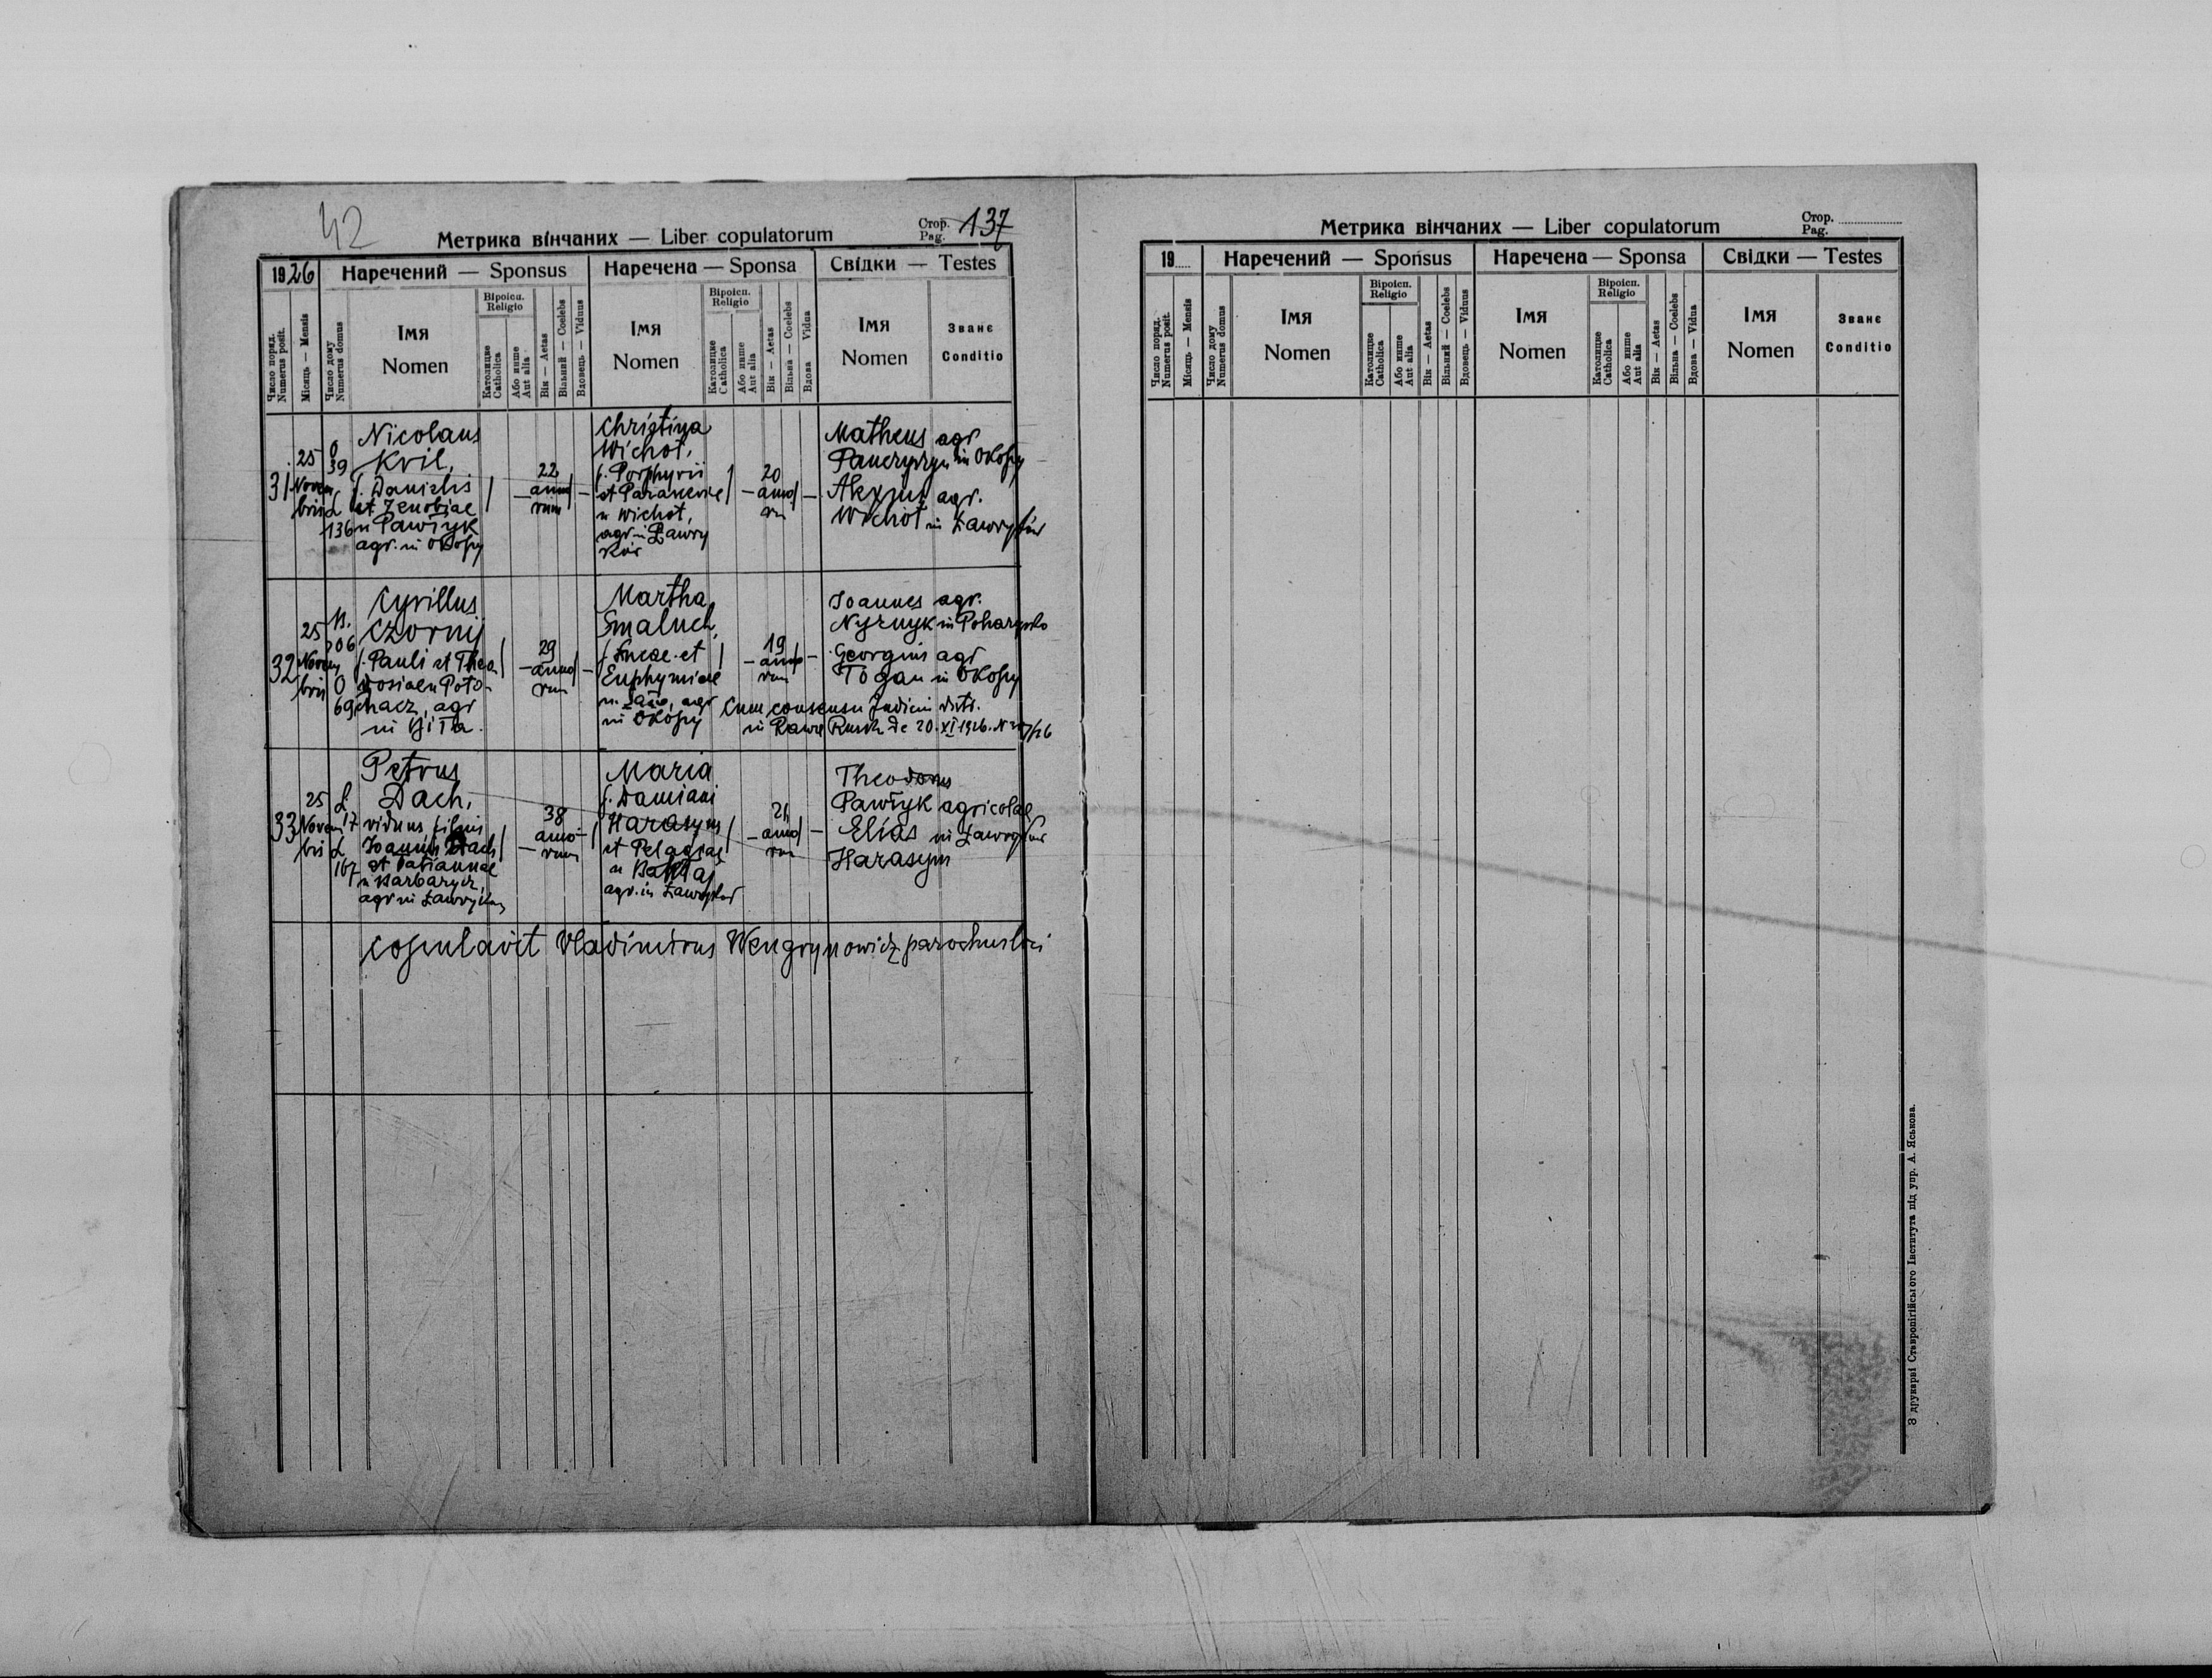 42
Метрика вінчаних — Liber copulatorum
Стор. 137
Pag.
1926
Наречений — Sponsus
Наречена — Sponsa
Свідки — Testes
Число поряд.
Numerus posit.
Місяць — Mensis
Число дому
Numerus domus
Імя
Nomen
Віроісп.
Religio
Католицке
Catholica
Або инше
Aut alia
Вік — Aetas
Вільний — Coelebs
Вдовець — Viduus
Імя
Nomen
Віроісп.
Religio
Католицке
Catholica
Або инше
Aut alia
Вік — Aetas
Вільна — Coelebs
Вдова Vidua
Імя
Nomen
Званє
Conditio
31
25
Novem
bris
O
39
Ł
136
Nicolaus
Kril,
f. Danielis
et Zenobiae
n Pawłyk
agr. in Okopy
22
anno
rum
Christina
Wichot,
f. Porphyrii
et Parasceviae
n Wichot,
agr. in Ławry
ków
20
anno
rum
Matheus agr
in Okopy
agr.
Wichot in Ławryków
32
25
Novem
bris
B.
206
O
69
Cyrillus
Czornij
f. Pauli et Theo
dosiae n Poto-
hacz, agr
in Biła.
29
anno
rum
Martha
Smaluch,
f. Lucae et
Euphymiae
agr
in Okopy
19
anno
rum
Joannes agr.
Georgius agr
Togan in Okopy
Cum consensu Judicii distr.
in Rawa Rusk. de 20. XI 1926. N
33
25
Novem
bris
Ł
17
Ł
167
Petrus
Dach,
viduus, filius
Joannis Dach
et Tatiannae
n Barbarycz,
agr in Ławryków
38
anno-
rum
Maria
f. Damiani
Harasym
et Pelagiae
n
agr. in Ławryków
21
anno
rum
Theodorus
Pawłyk agricolae
Elias in Ławryków
Harasym
copulavit Vladimirus Wengrynowicz parochus loci
Метрика вінчаних — Liber copulatorum
Стор.
Pag.
19
Наречений — Sponsus
Наречена — Sponsa
Свідки — Testes
Число поряд.
Numerus posit.
Місяць — Mensis
Число дому
Numerus domus
Імя
Nomen
Віроісп.
Religio
Католицке
Catholica
Або инше
Aut alia
Вік — Aetas
Вільний — Coelebs
Вдовець — Viduus
Імя
Nomen
Віроісп.
Religio
Католицке
Catholica
Або инше
Aut alia
Вік — Aetas
Вільна — Coelebs
Вдова — Vidua
Імя
Nomen
Званє
Conditio
З друкарні Ставропігійського Інститута під упр. А. Яськова.